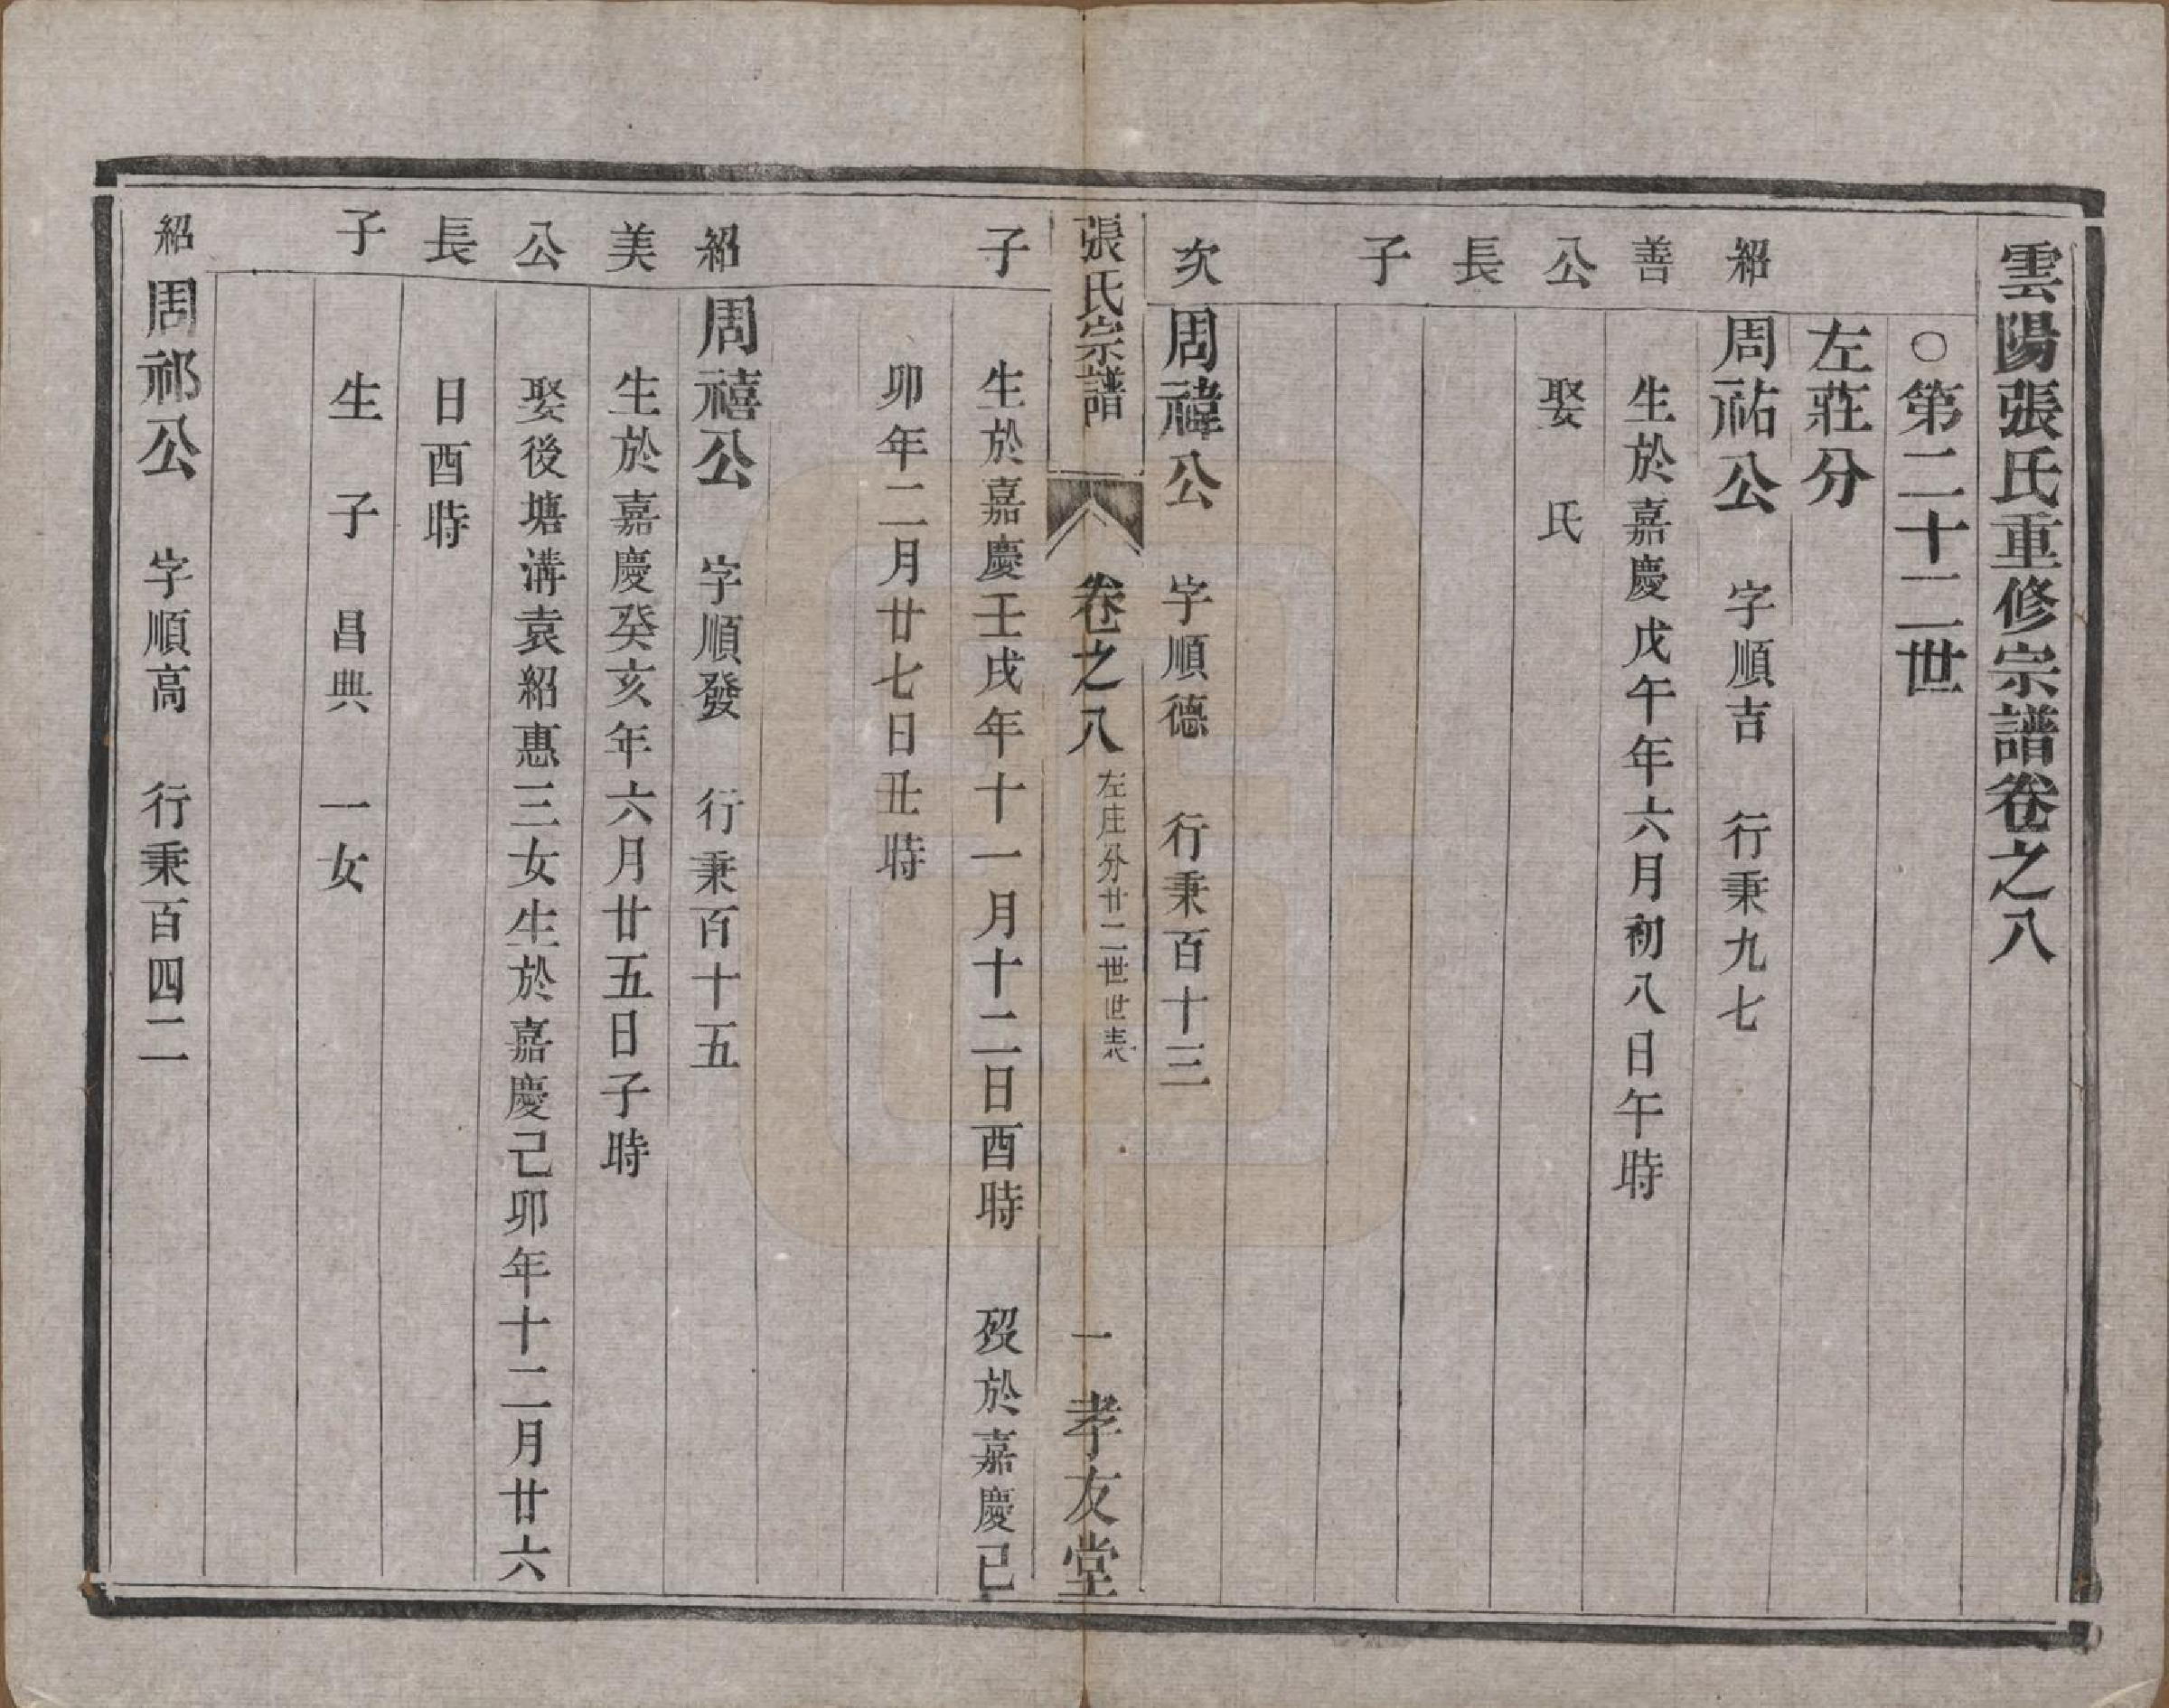 雲陽張氏重修宗譜卷之八
○第二十二世
左莊分
紹善公長子
周祐公　字順吉　行秉九七
生於嘉慶戊午年六月初八日午時
娶　氏
次子
周禕公　字順德　行秉百十三
張氏宗譜　卷之八　左庄分廿二世世表　一　孝友堂
生於嘉慶壬戌年十一月十二日酉時　歿於嘉慶己
卯年二月廿七日丑時
紹美公長子
周禧公　字順發　行秉百十五
生於嘉慶癸亥年六月廿五日子時
娶後塘溝袁紹惠三女生於嘉慶己卯年十二月廿六
日酉時
生　子　昌典　一女
紹
周祁公　字順高　行秉百四二